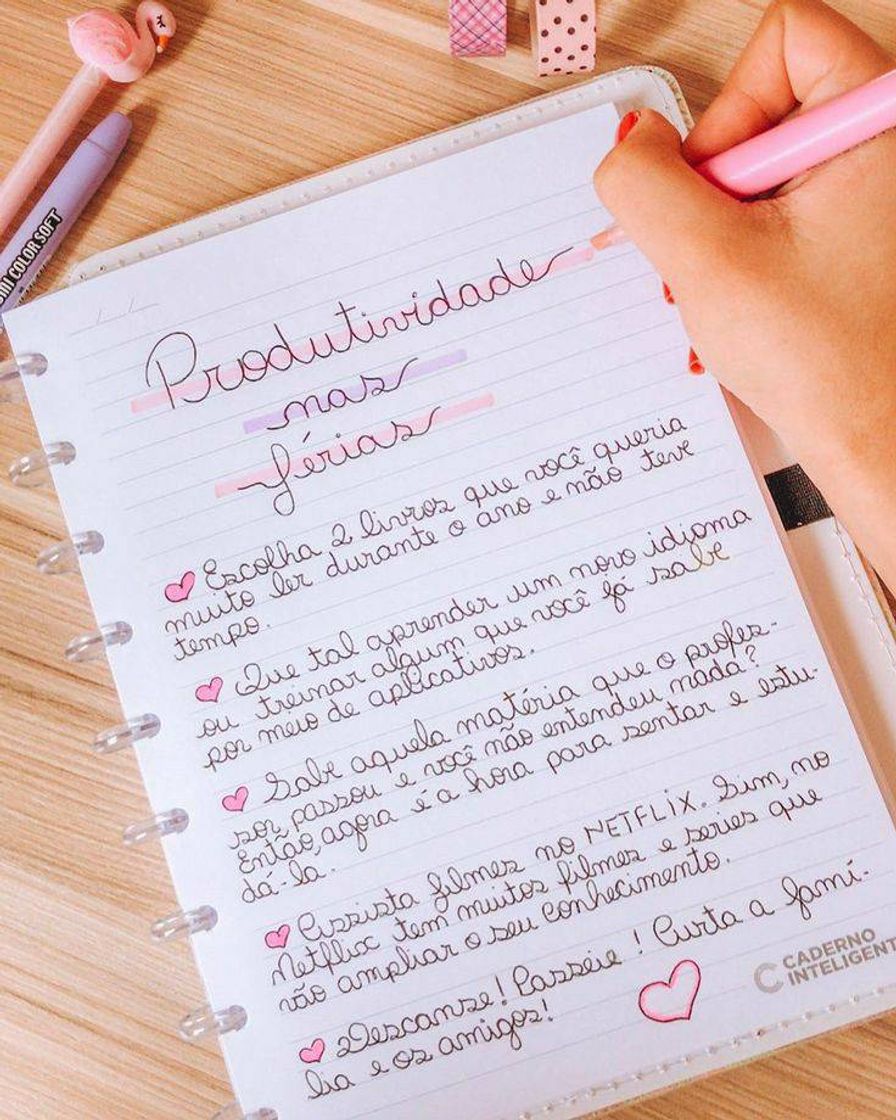 Produtividade
nas
férias
Escolha 2 livros que você queria
muito ler durante o ano e não teve
tempo.
Que tal aprender um novo idioma
ou treinar algum que você já sabe
por meio de aplicativos.
Sabe aquela matéria que o profes-
sor passou e você não entendeu nada?
Então, agora é a hora para sentar e estu-
dá-la.
Assista filmes no NETFLIX. Sim, no
Netflix tem muitos filmes e series que
vão ampliar o seu conhecimento.
Descanse! Passeie! Curta a famí-
lia e os amigos!
CADERNO
INTELIGENT
COLOR SOFT